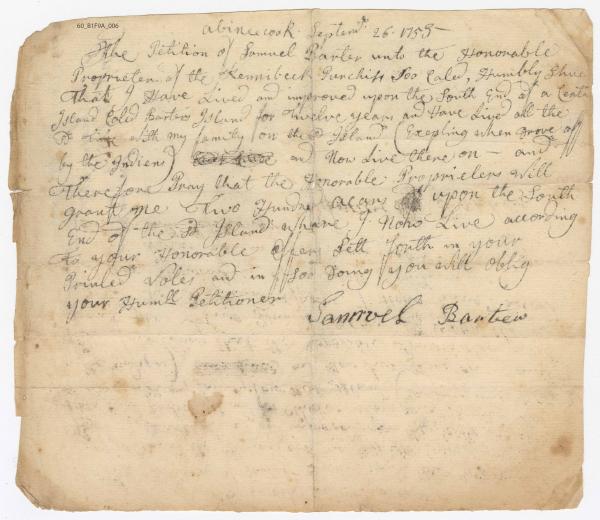 60_B1F9A_006
abincecook Septemr 26 1755
The Petition of Samuel Barter unto the Honorable
Proprieters of the Kennibeck Purchiss Soo Caled, Humbly Shue
That I Have Lived and improved upon the South End of a Ceatn
Island Caled Barters Island for Twelve years and Have Lived all the
Sd time with my family on the Sd Island (Exepting when Drove off
by the Indiens) and Now Live there on - and
Therefore Pray that the Honorable Proprieters will
grant me Two Hundred acars upon the South
End of the Sd Island whare I Now Live according
To your Honorable Sett fouth in your
Printed Votes and in Soo Doing you will oblig
your Humll Petitioner
Samuel Barter